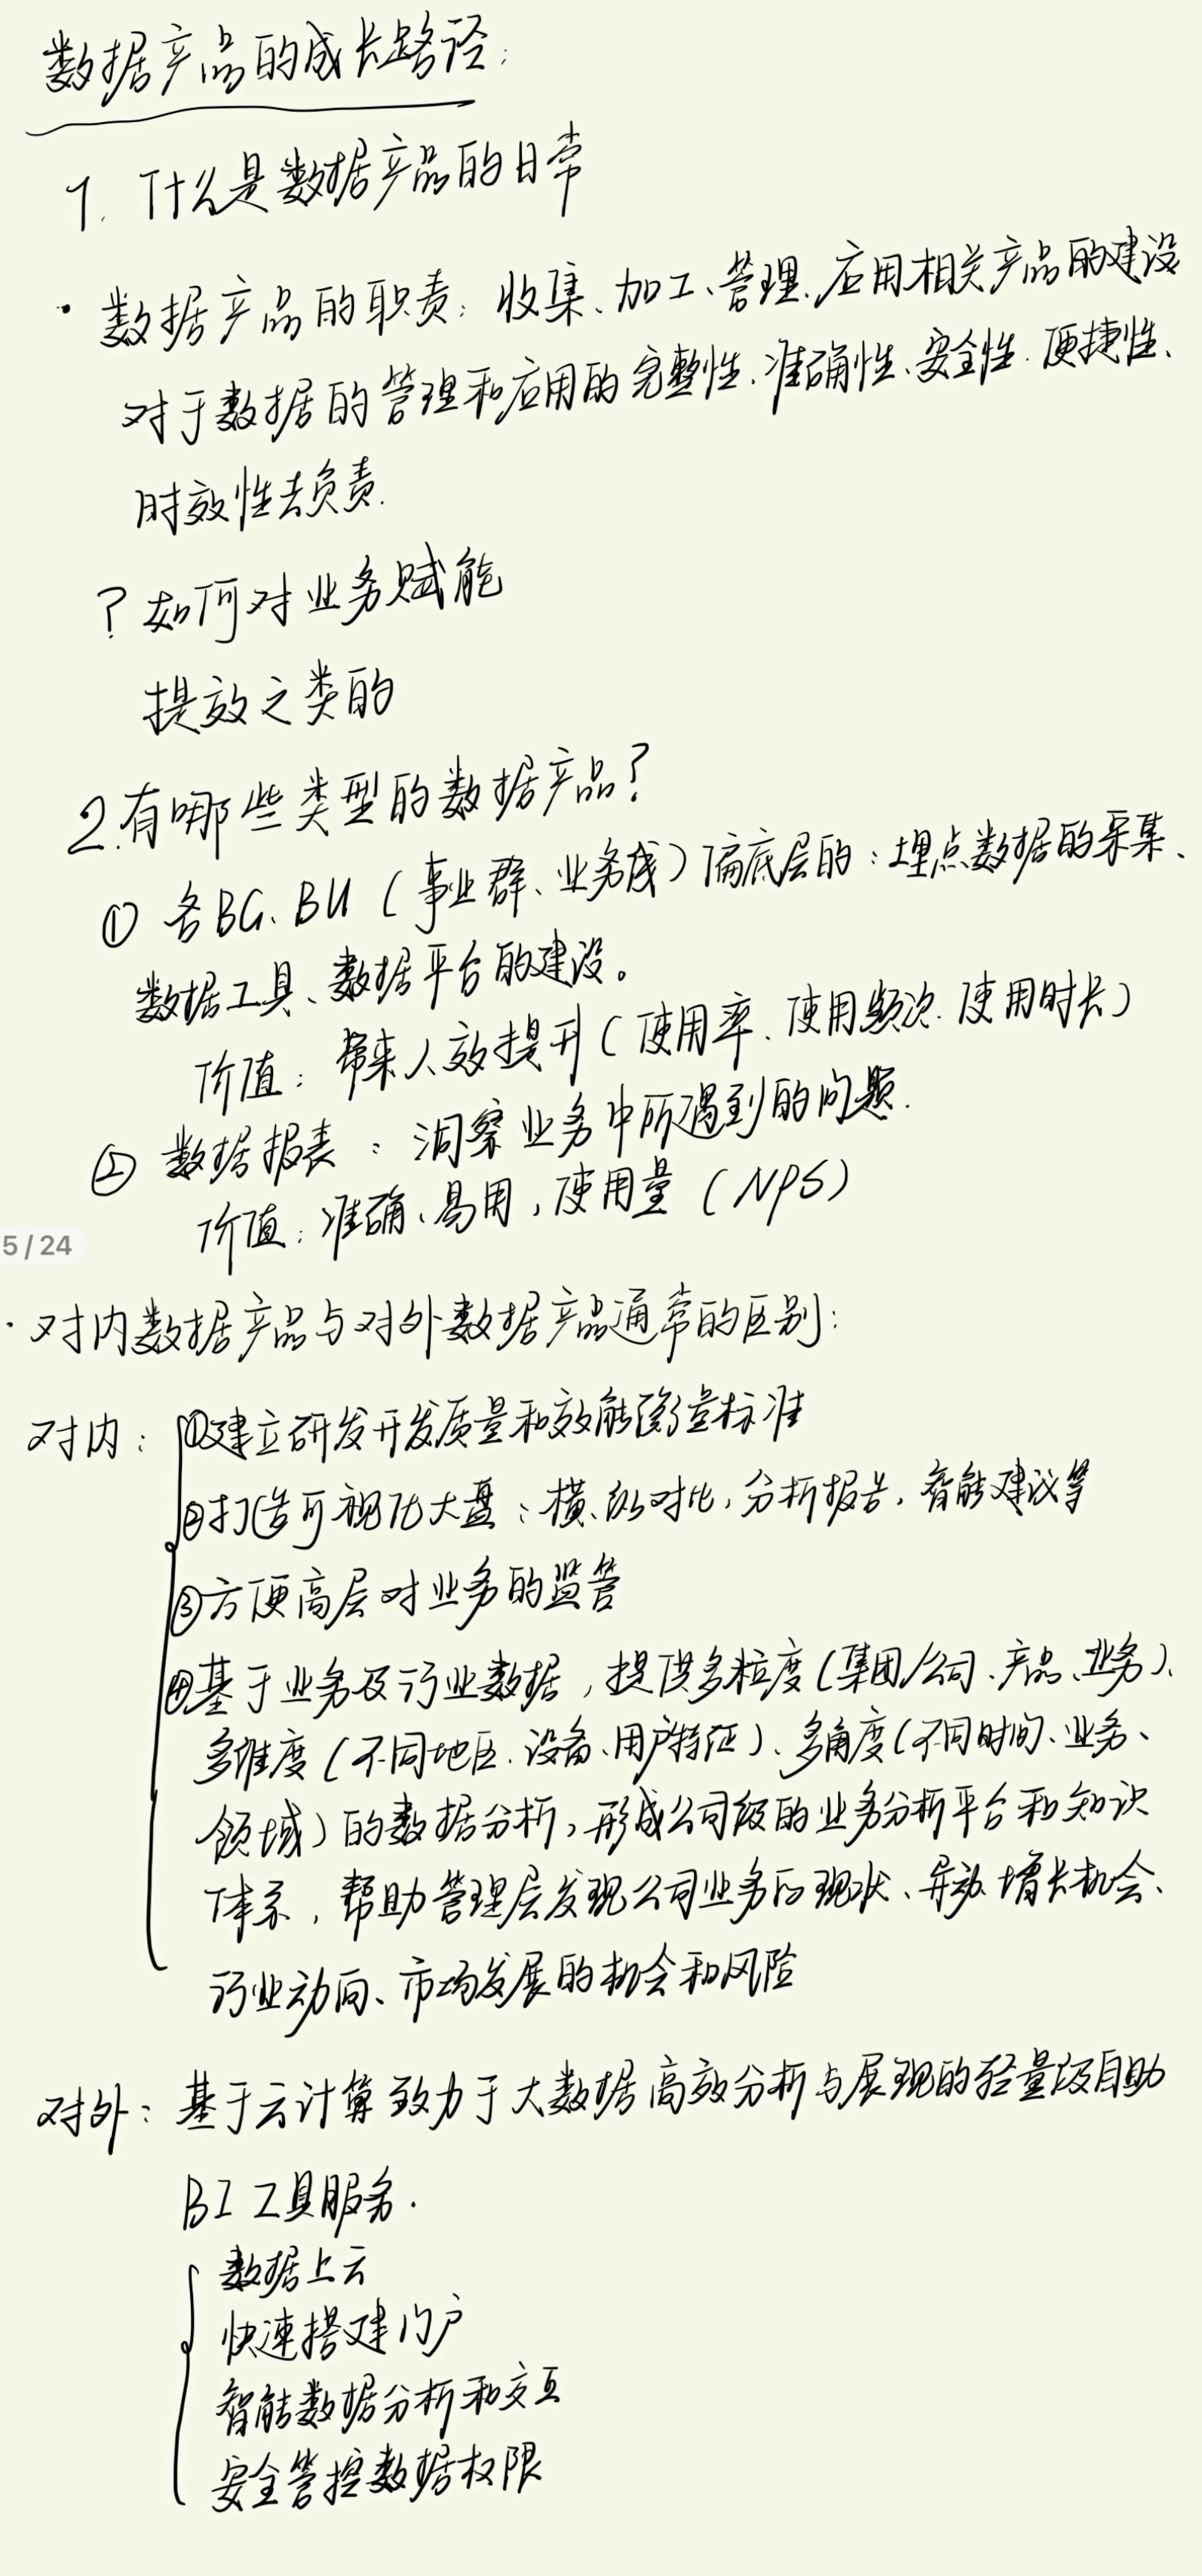 数据产品的成长路径:
1. 什么是数据产品的日常
· 数据产品的职责: 收集、加工、管理、应用相关产品的建设
对于数据的管理和应用的完整性、准确性、安全性、便捷性、
时效性去负责.
? 如何对业务赋能
提效之类的
2.有哪些类型的数据产品?
① 各BG、BU (事业群、业务线) 偏底层的: 埋点数据的采集、
数据工具、数据平台的建设。
价值: 带来人效提升 (使用率、使用频次、使用时长)
② 数据报表: 洞察业务中所遇到的问题.
价值: 准确、易用, 使用量 (NPS)
5/24
· 对内数据产品与对外数据产品通常的区别:
对内: ①建立研发开发质量和效能衡量标准
②打造可视化大盘: 横、纵对比, 分析报告, 智能建议等
③方便高层对业务的监管
④基于业务及行业数据, 提供多粒度 (集团/公司、产品、业务)、
多维度 (不同地区、设备、用户特征)、多角度 (不同时间、业务、
领域) 的数据分析, 形成公司级的业务分析平台和知识
体系, 帮助管理层发现公司业务的现状、异动、增长机会、
行业动向、市场发展的机会和风险
对外: 基于云计算致力于大数据高效分析与展现的轻量级自助
BI 工具服务.
数据上云
快速搭建门户
智能数据分析和交互
安全管控数据权限